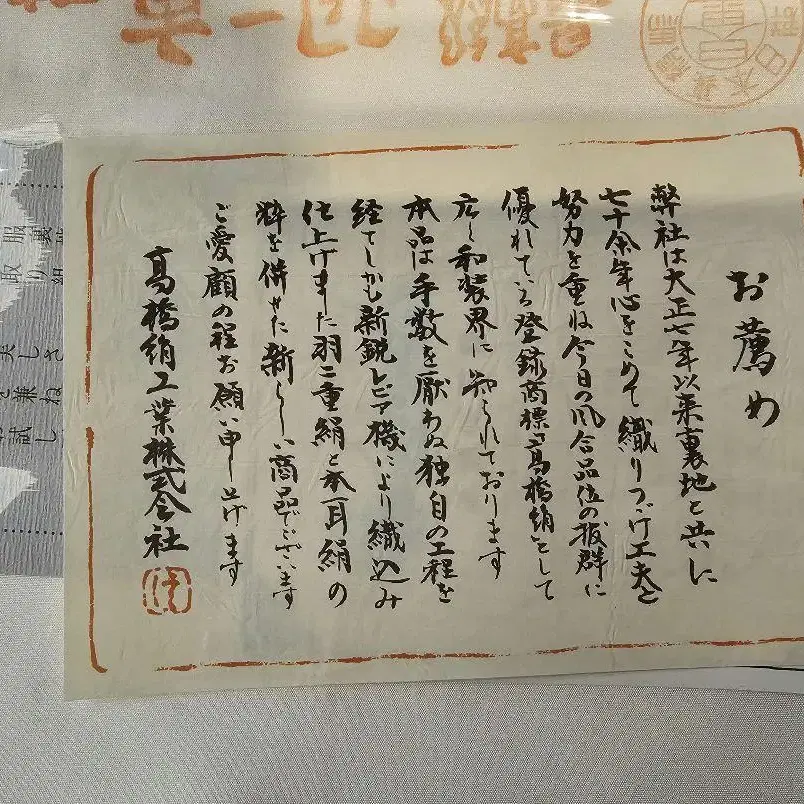 お薦め
弊社は大正七年以来裏地と共に
七十余年心をこめて織りつづけ工夫と
努力を重ね今日の風合品位の抜群に
優れている登録商標「高橋絹」として
広く和装界に知られております
本品は手数を厭わぬ独自の工程を
経てしかも新鋭レピア機により織込み
仕上げました羽二重絹と本耳絹の
粋を併せた新らしい商品でございます
ご愛顧の程お願い申し上げます
高橋絹工業株式会社